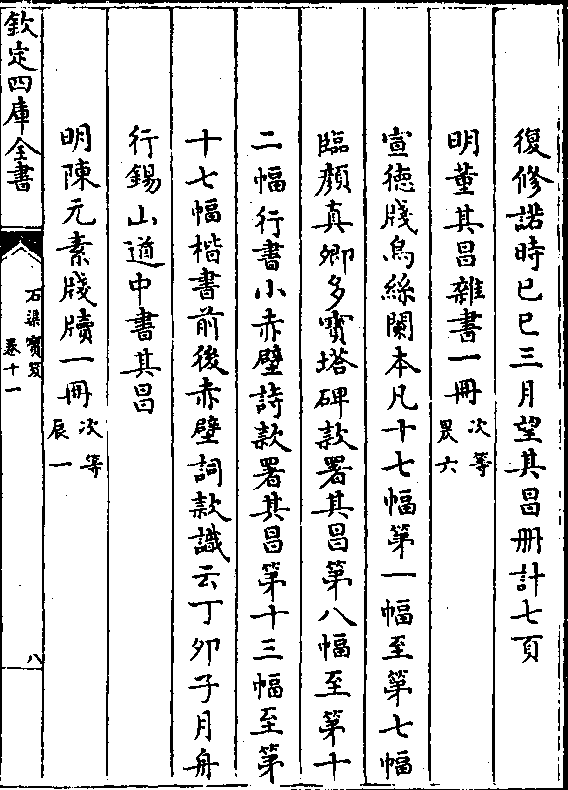 復修諾時己巳三月望其昌册計七頁
明董其昌雜書一冊次等昃六
宣德牋烏絲闌本凡十七幅第一幅至第七幅
臨顔真卿多寳塔碑款署其昌第八幅至第十
二幅行書小赤壁詩款署其昌第十三幅至第
十七幅楷書前後赤壁詞款識云丁卯子月舟
行錫山道中書其昌
明陳元素牋牘一冊次等辰一
欽定四庫全書
石渠寳笈
卷十一
八